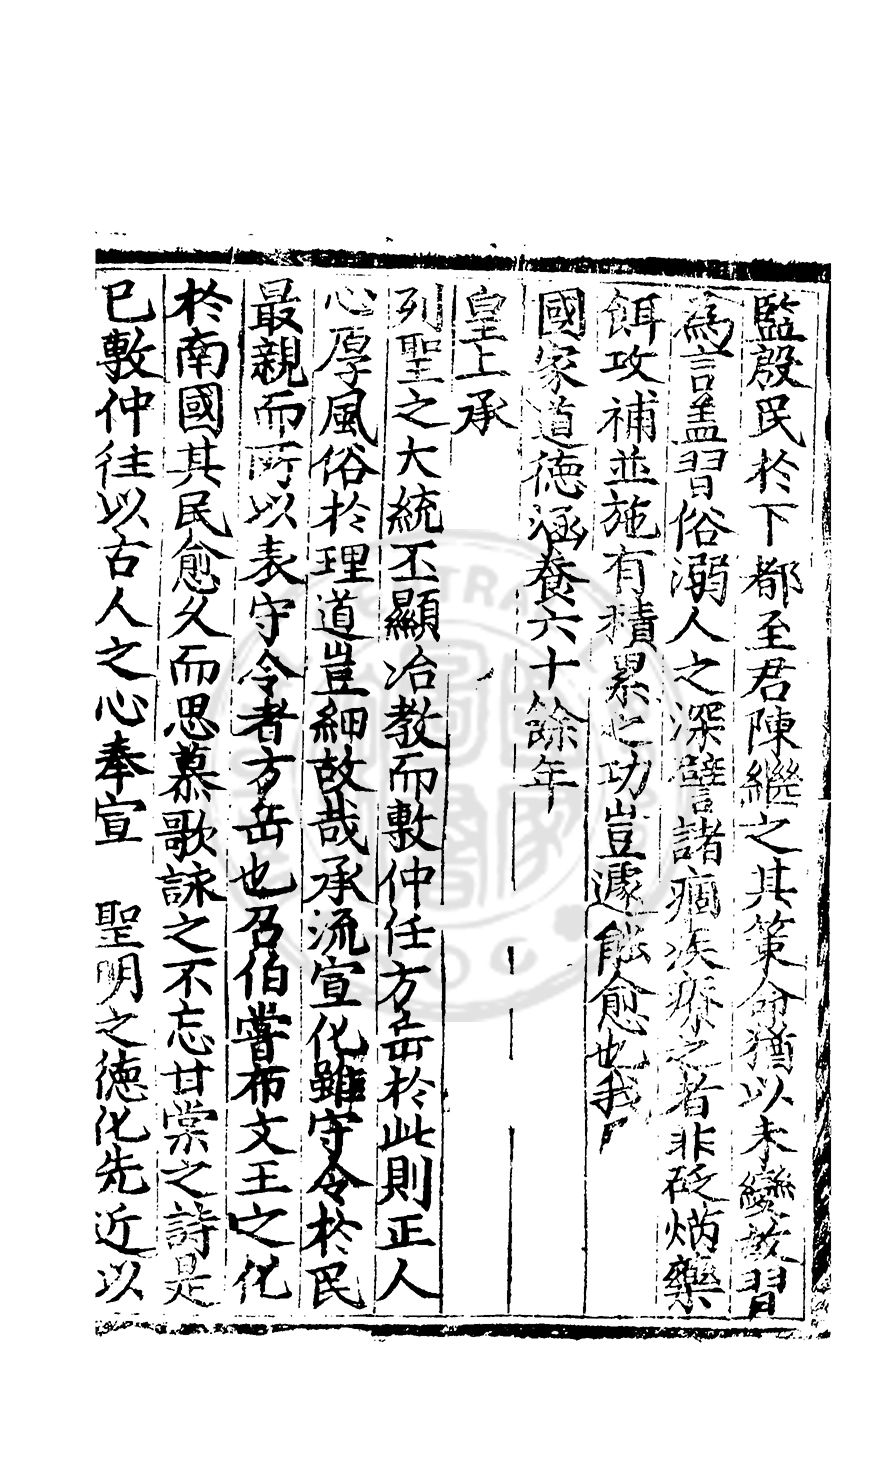 監殷民於下都至君陳繼之其策命猶以未變故習
為言盖習俗溺人之深譬諸痼疾療之者非砭焫藥
餌攻補並施有積累之功豈遽能愈也我
國家道德涵養六十餘年
皇上承
列聖之大統丕顯治教而敷仲任方岳於此則正人
心厚風俗於理道豈細故哉承流宣化雖守令於民
最親而所以表守令者方岳也召伯嘗布文王之化
於南國其民愈久而思慕歌詠之不忘甘棠之詩是
已敷仲往以古人之心奉宣　聖明之德化先近以